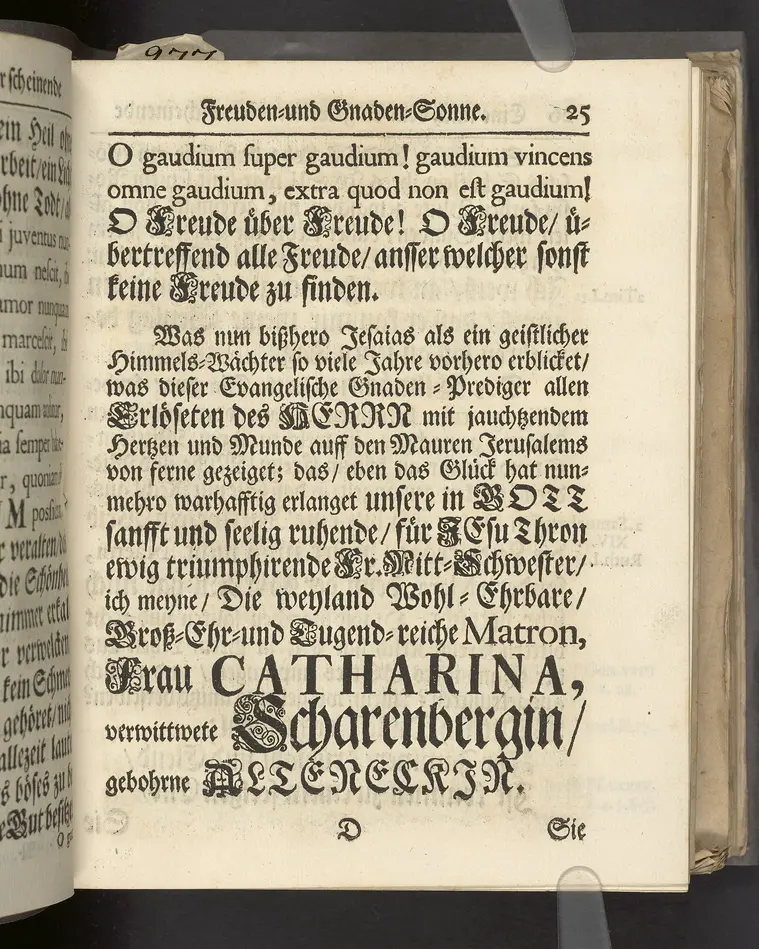 977
Freuden-und Gnaden-Sonne. 25
O gaudium super gaudium! gaudium vincens
omne gaudium, extra quod non est gaudium!
O Freude über Freude! O Freude/ ü-
bertreffend alle Freude/ ansser welcher sonst
keine Freude zu finden.
Was nun bißhero Jesaias als ein geistlicher
Himmels-Wächter so viele Jahre vorhero erblicket/
was dieser Evangelische Gnaden-Prediger allen
Erlöseten des HERRN mit jauchtzendem
Hertzen und Munde auff den Mauren Jerusalems
von ferne gezeiget; das/ eben das Glück hat nun-
mehro warhafftig erlanget unsere in GOTT
sanfft und seelig ruhende/ für JEsu Thron
ewig triumphirende Fr. Mitt-Schwester/
ich meyne/ Die weyland Wohl-Ehrbare/
Groß-Ehr-und Tugend-reiche Matron,
Frau CATHARINA,
verwittwete Scharenbergin/
gebohrne ALTENECKJN.
D Sie
rscheinende
ein Heil
rbeit/ein
ohne Todt/
i juventus
num nescit,
amor nunquam
marcescit,
ibi dolor nun-
nquam
ia semper
r, quoniam
M
r veralten/
die Schönhei
nimmer erkal
r verwelcken
kein Schmer
gehöret/
allezeit laut
s böses zu
e Gut besitz